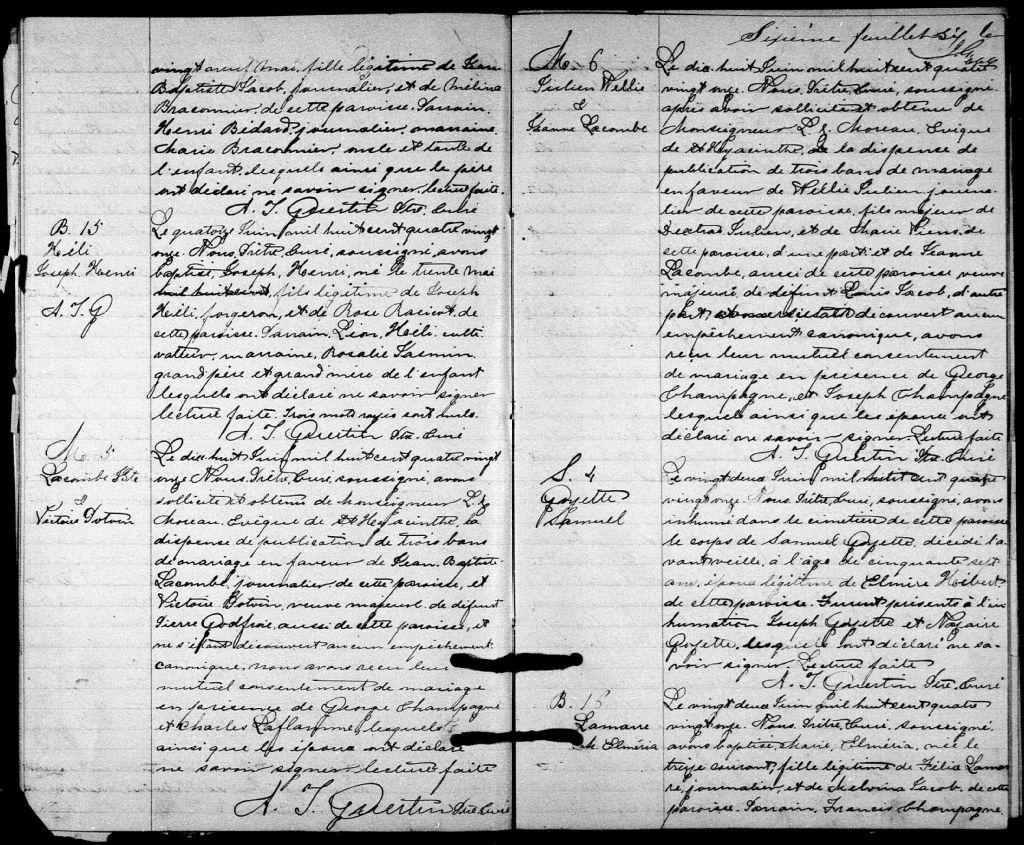 vingt neuf Mai, fille légitime de Jean
Baptiste Jacob, journalier, et de Mélina
Braconnier, de cette paroisse. Parrain,
Henri Bédard, journalier, marraine,
Marie Braconnier, oncle et tante de
l'enfant, lesquels ainsi que le père
ont déclaré ne savoir signer, lecture faite.
A. T. Guertin Ptre. Curé
B. 15
Héli
Joseph Henri
A. T. G
Le quatorze Juin mil huit cent quatre vingt
onze. Nous, Prêtre, Curé, soussigné, avons
baptisé, Joseph, Henri, né le trente mai
mil huit cent, fils légitime de Joseph
Héli, forgeron, et de Rose Racicot, de
cette paroisse. Parrain, Léon, Héli, culti
vateur, marraine, Rosalie Jasmin,
grand père et grand mère de l'enfant
lesquels ont déclaré ne savoir signer
lecture faite. Trois mots rayés sont nuls.
A. T. Guertin Ptre. Curé
M. 5
Lacombe Bte
&
Victoire Potvin
Le dix huit Juin mil huit cent quatre vingt
onze Nous, Prêtre, Curé, soussigné, avons
sollicité et obtenu de Monseigneur L. Z
Moreau, Evêque de St Hyacinthe, la
dispense de publication de trois bans
de mariage en faveur de Jean Baptiste
Lacombe, journalier, de cette paroisse, et
Victoire Potvin, veuve majeure de défunt
Pierre Godfroie, aussi de cette paroisse, et
ne s'étant découvert aucun empêchement
canonique, nous avons reçu leur
mutuel consentement de mariage
en présence de George Champagne
et Charles Laflamme, lesquels
ainsi que les époux ont déclaré
ne savoir signer. lecture faite
A. T. Guertin Ptre Curé
Sixième feuillet
M. 6
Julien Wellie
&
Jeanne Lacombe
Le dix huit Juin mil huit cent quatre
vingt onze. Nous, Prêtre, Curé, soussigné,
après avoir sollicité et obtenu de
Monseigneur L. Z. Moreau, Evêque
de St Hyacinthe, de la dispense de
publication de trois bans de mariage
en faveur de Wellie Julien, journa-
lier de cette paroisse, fils majeur de
Julien, et de Marie Viens, de
cette paroisse, d'une part; et de Jeanne
Lacombe, aussi de cette paroisse, veuve
majeure, de défunt Louis Jacob, d'autre
part, découvert aucun
empêchement canonique, avons
reçu leur mutuel consentement
de mariage en présence de George
Champagne, et Joseph Champagne
lesquels ainsi que les époux ont
déclaré ne savoir signer. Lecture faite
A. T. Guertin Ptre. Curé
S. 4
Goyette
Samuel
Le vingt deux Juin mil huit cent quatre
vingt onze. Nous, Prêtre, Curé, soussigné, avons
inhumé dans le cimetière de cette paroisse
le corps de Samuel Goyette, décédé l'a
vant veille, à l'âge de cinquante sept
ans, époux légitime de Elmire Hébert,
de cette paroisse. Furent présents à l'in
humation Joseph Goyette et Nazaire
Goyette, lesquels ont déclaré ne sa-
voir signer. Lecture faite
A. T. Guertin Ptre. Curé
B. 16
Lamarre
Elméria
Le vingt deux Juin mil huit cent quatre
vingt onze. Nous, Prêtre, Curé, soussigné,
avons baptisé Marie, Elméria, née le
treize courant, fille légitime de Félix Lamar
re, journalier, et de Malvina Jacob, de cette
paroisse. Parrain, Francis Champagne,